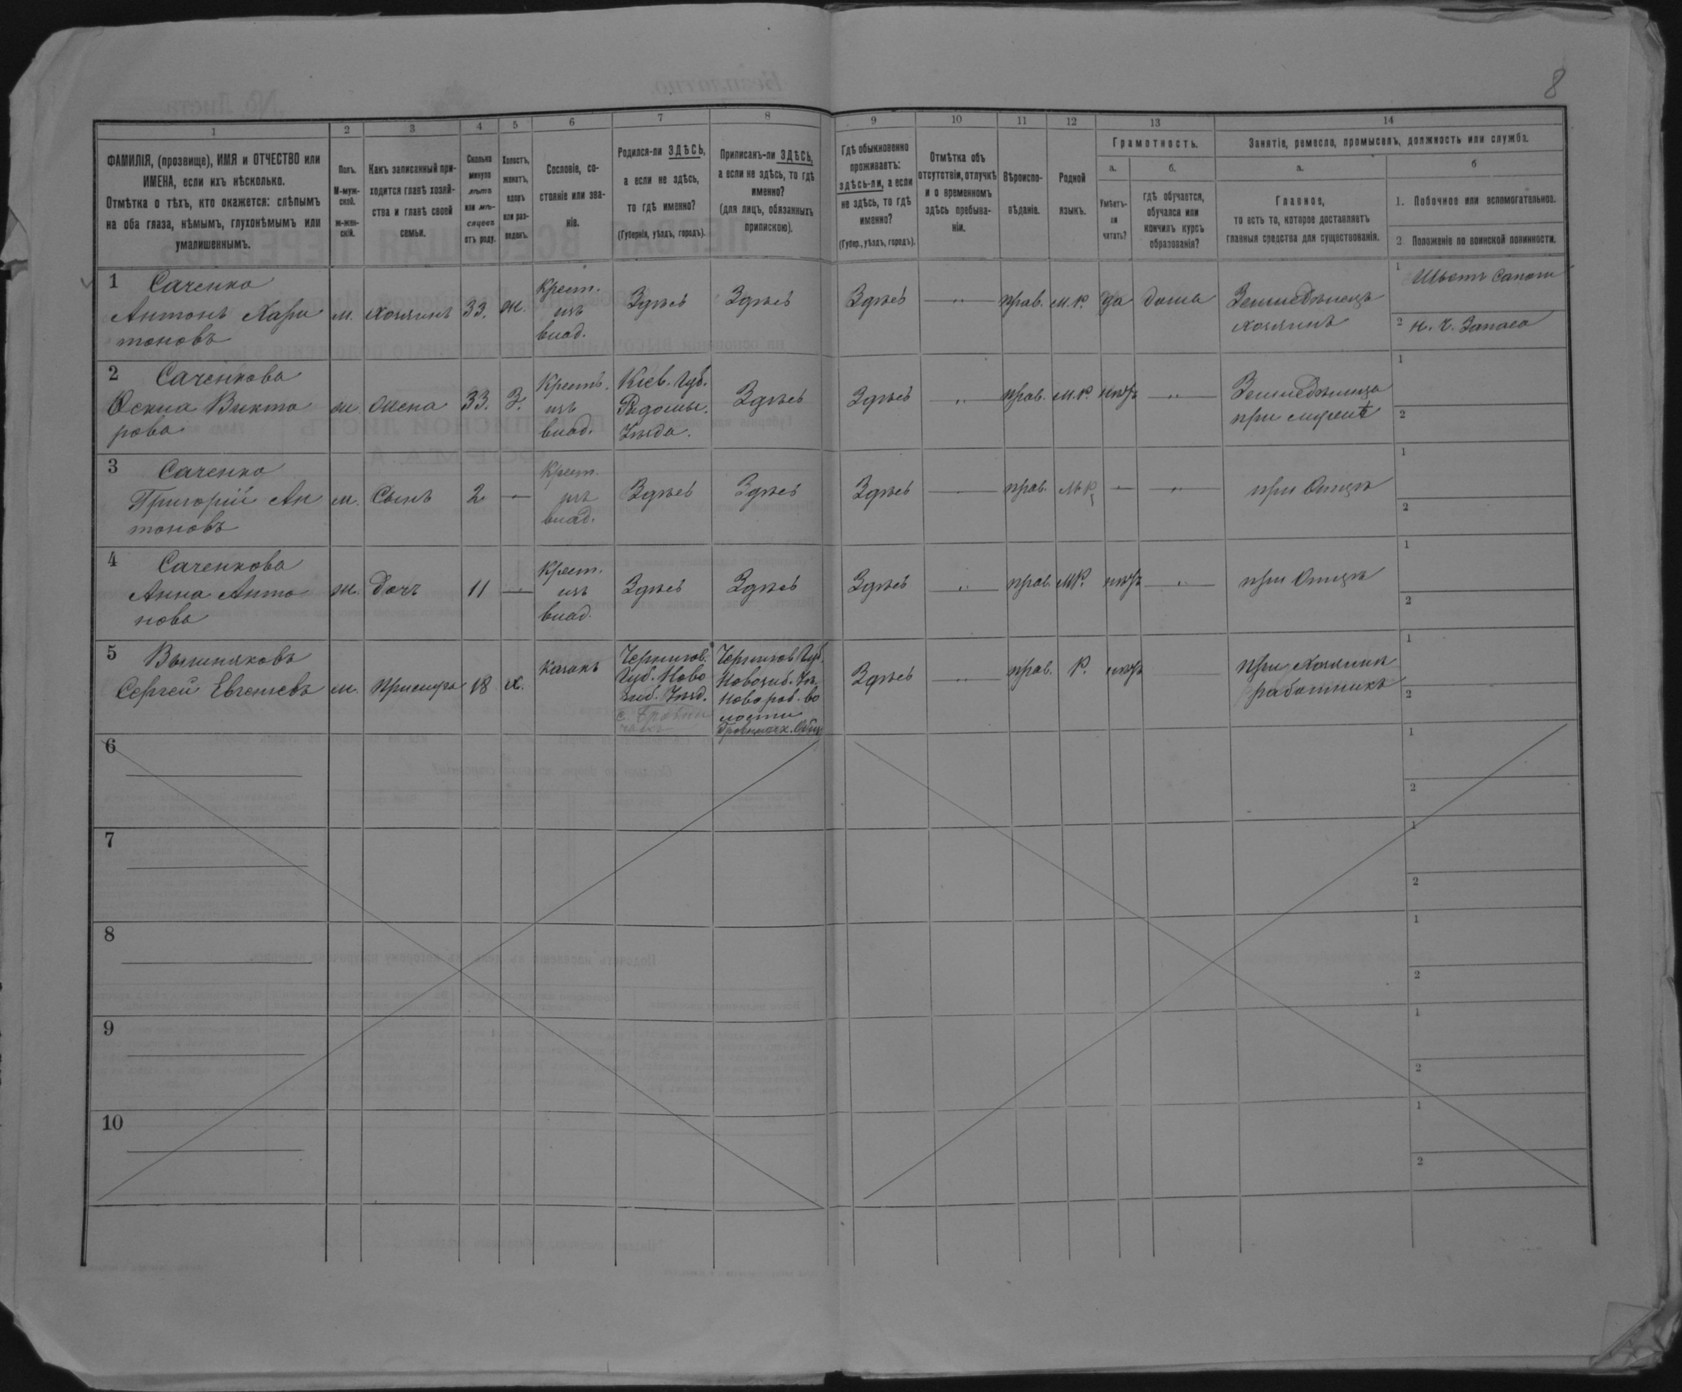 8
1 2 3 4 5 6 7 8 9 10 11 12 13 14
ФАМИЛІЯ, (прозвище), ИМЯ и ОТЧЕСТВО или
ИМЕНА, если ихъ нѣсколько.
Отмѣтка о тѣхъ, кто окажется: слѣпымъ
на оба глаза, нѣмымъ, глухонѣмымъ или
умалишеннымъ.
Полъ.
М-муж-
ской.
Ж-жен-
скій.
Какъ записанный при-
ходится главѣ хозяй-
ства и главѣ своей
семьи.
Сколько
минуло
лѣтъ
или мѣ-
сяцевъ
отъ роду.
Холостъ,
женатъ,
вдовъ
или раз-
веденъ.
Сословіе, со-
стояніе или зва-
ніе.
Родился-ли ЗДѢСЬ,
а если не здѣсь,
то гдѣ именно?
(Губернія, уѣздъ, городъ).
Приписанъ-ли ЗДѢСЬ,
а если не здѣсь, то гдѣ
именно?
(для лицъ, обязанныхъ
припискою).
Гдѣ обыкновенно
проживаетъ:
здѣсь-ли, а если
не здѣсь, то гдѣ
именно?
(Губер., уѣздъ, городъ).
Отмѣтка объ
отсутствіи, отлучкѣ
и о временномъ
здѣсь пребыва-
ніи.
Вѣроиспо-
вѣданіе.
Родной
языкъ.
Грамотность.
а.
Умѣетъ-
ли
читать?
б.
гдѣ обучается,
обучался или
кончилъ курсъ
образованія?
Занятіе, ремесло, промыселъ, должность или служба.
а.
Главное,
то есть то, которое доставляетъ
главныя средства для существованія.
б
1. Побочное или вспомогательное.
2. Положеніе по воинской повинности.
1 Саченко
Антонъ Хари
тоновъ
м. хозяинъ 33. ж.
Крест.
изъ
влад.
Здѣсь Здѣсь Здѣсь — " — прав. м.р. да дома
Земледѣлецъ
хозяинъ
1 Шьетъ сапоги
2 н. ч. Запаса
2 Саченкова
Викто
рова
ж. жена 33. З.
Крест.
изъ
влад.
Кіев. Губ.
Радомы.
Уѣзда.
Здѣсь Здѣсь — " — прав. м.р. нѣтъ — " —
при мужѣ
1
2
3 Саченко
Григорій Ан
тоновъ
м. Сынъ 2 —
Крест.
изъ
влад.
Здѣсь Здѣсь Здѣсь — прав. м.р. — — " —
при Отцѣ
1
2
4 Саченкова
Анна Анто
нова
ж. дочь 11 —
Крест.
изъ
влад.
Здѣсь Здѣсь Здѣсь — " — прав. м.р. нѣтъ — " —
при Отцѣ
1
2
5
Сергей Евгеневъ
м. прислуга 18 х.
казакъ
Чернигов.
Губ. Ново
зыб. Уѣзд.
Чернигов. Губ.
Новозыб. Уѣ.
Новороп. во
лости
Здѣсь — " — прав. Р. нѣтъ —
при хозяинѣ
работникъ
1
2
6
1
2
7
1
2
8
1
2
9
1
2
10
1
2